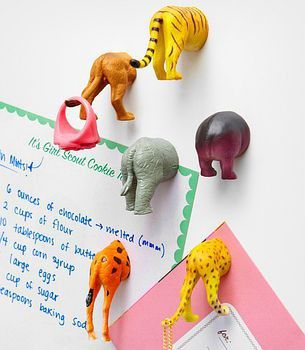 It's Girl Scout Cookie
6 ounces of chocolate → melted (mmm)
2 cups of flour
10 tablespoons of butter
1/4 cup corn syrup
large eggs
cup of sugar
baking soda
for: